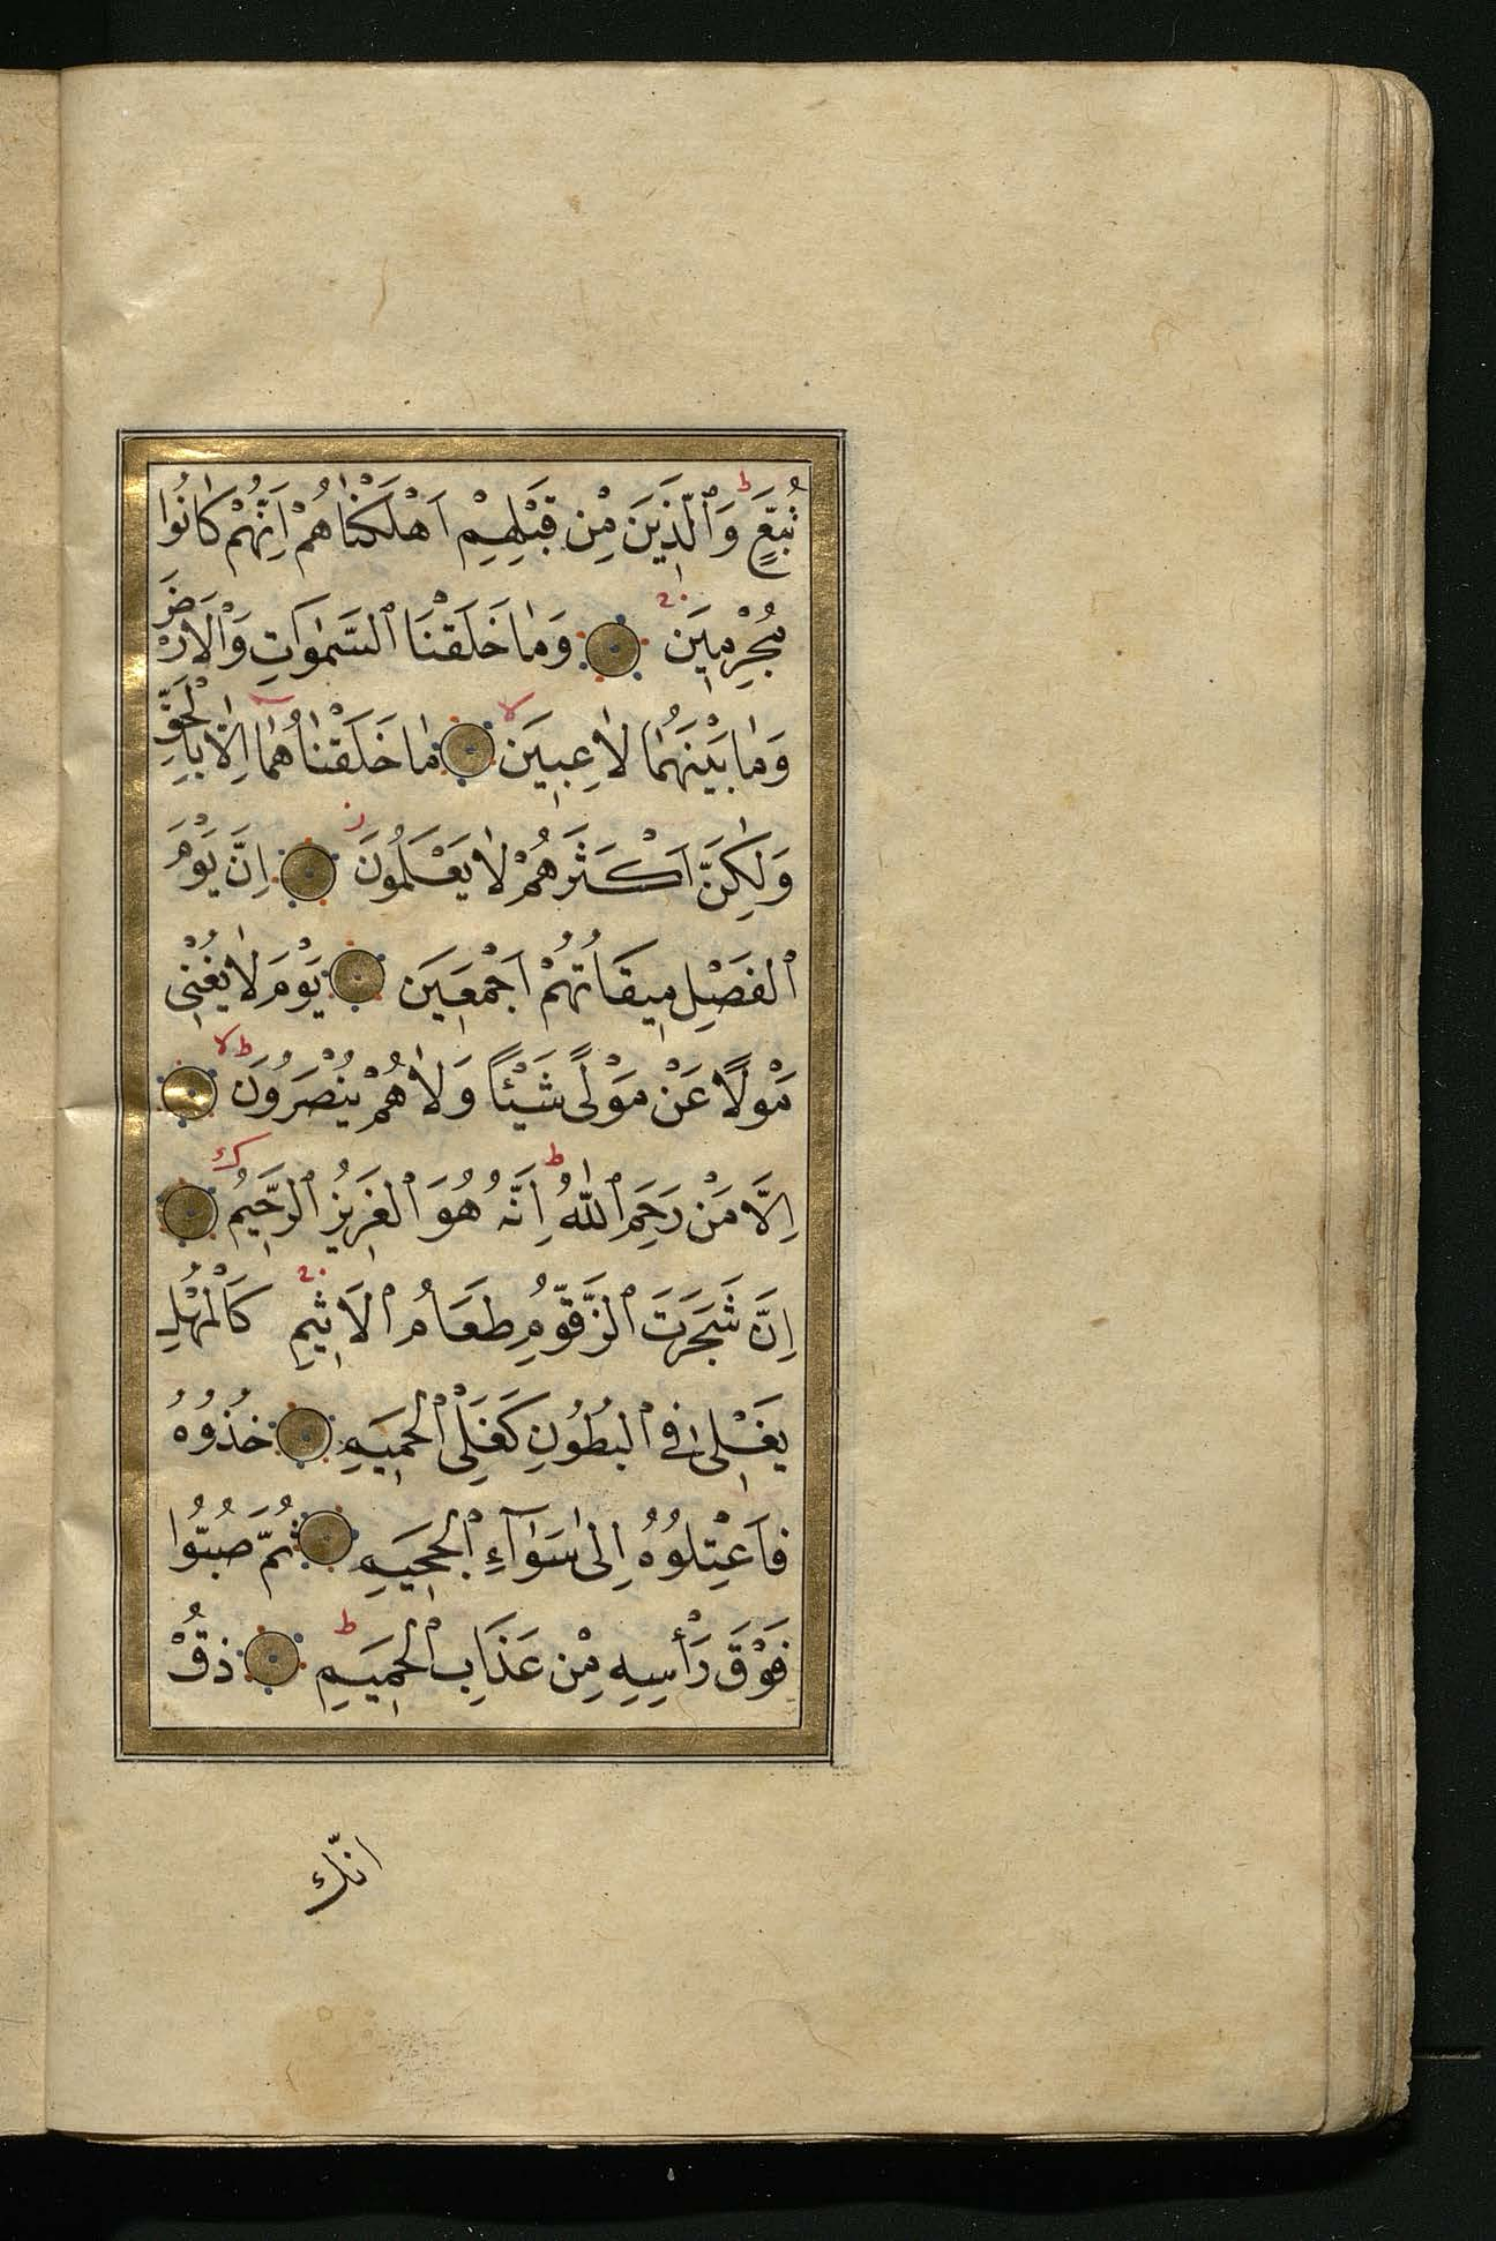 تُبَّعٍ وَٱلَّذِينَ مِنْ قَبْلِهِمْ اَهْلَكْنَاهُمْ اِنَّهُمْ كَانُوا
مُجْرِمِينَ وَمَا خَلَقْنَا ٱلسَّمٰوَاتِ وَٱلْاَرْضَ
وَمَا بَيْنَهُمَا لَاعِبِينَ مَا خَلَقْنَاهُمَا اِلَّا بِالْحَقِّ
وَلٰكِنَّ اَكْثَرَهُمْ لَا يَعْلَمُونَ اِنَّ يَوْمَ
ٱلْفَصْلِ مِيقَاتُهُمْ اَجْمَعِينَ يَوْمَ لَا يُغْنِى
مَوْلًا عَنْ مَوْلًى شَيْئًا وَلَا هُمْ يُنْصَرُونَ
اِلَّا مَنْ رَحِمَ ٱللّٰهُ اِنَّهُ هُوَ ٱلْعَزِيزُ ٱلرَّحِيمُ
اِنَّ شَجَرَتَ ٱلزَّقُّومِ طَعَامُ ٱلْاَثِيمِ كَالْمُهْلِ
يَغْلِى فِى ٱلْبُطُونِ كَغَلْىِ ٱلْحَمِيمِ خُذُوهُ
فَاعْتِلُوهُ اِلٰى سَوَآءِ ٱلْجَحِيمِ ثُمَّ صُبُّوا
فَوْقَ رَأْسِهِ مِنْ عَذَابِ ٱلْحَمِيمِ ذُقْ
انّك